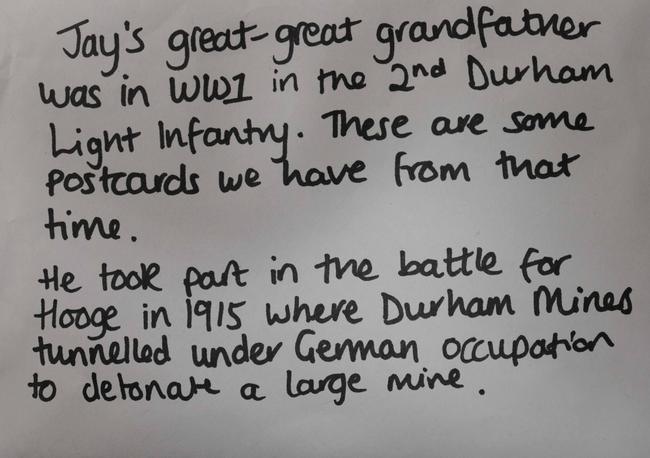 Jay's great-great grandfather
was in WW1 in the 2nd Durham
Light Infantry. These are some
postcards we have from that
time.
He took part in the battle for
Hooge in 1915 where Durham Mines
tunnelled under German occupation
to detonate a large mine.